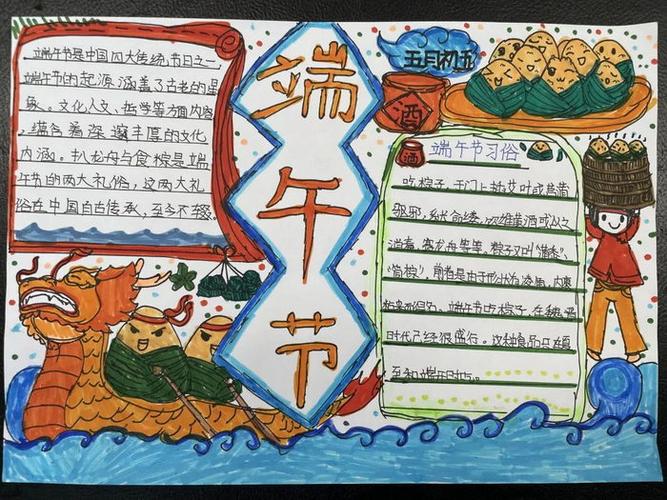 端午节是中国四大传统节日之一
端午节的起源涵盖了古老的星
象。文化人文、哲学等方面内容
蕴含着深邃丰厚的文化
内涵。扒龙舟与食粽是端
午节的两大礼俗,这两大礼
俗在中国自古传承,至今不辍。
端午节
五月初五
酒
端午节习俗
吃粽子,于门上插艾叶或菖蒲
驱邪,系长命缕,饮雄黄酒或以之
消毒,赛龙舟等等。粽子又叫
"筒粽",前者是由于形状有棱角,内裹
端午节吃粽子,在魏晋
时代已经很盛行。这种食品